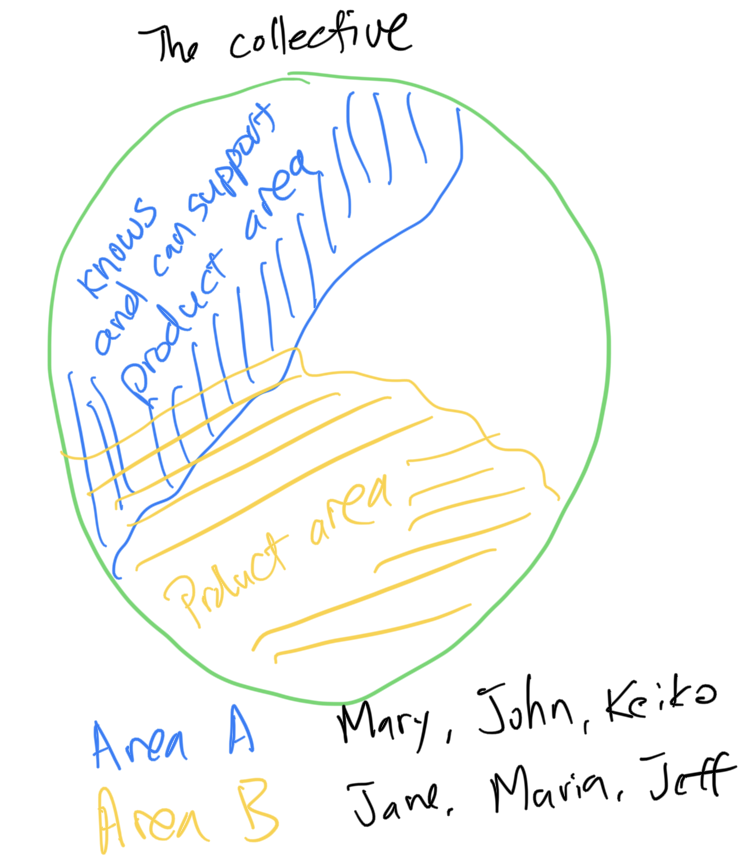 The collective
knows
and can support
product area
Product area
Area A Mary, John, Keiko
Area B Jane, Maria, Jeff